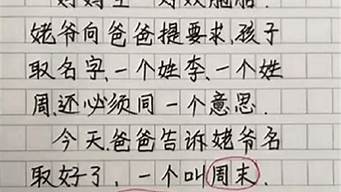 姥爷向爸爸提要求,孩子
取名字,一个姓李,一个姓
周,还必须同一个意思.
今天,爸爸告诉姥爷名
取好了,一个叫周末,